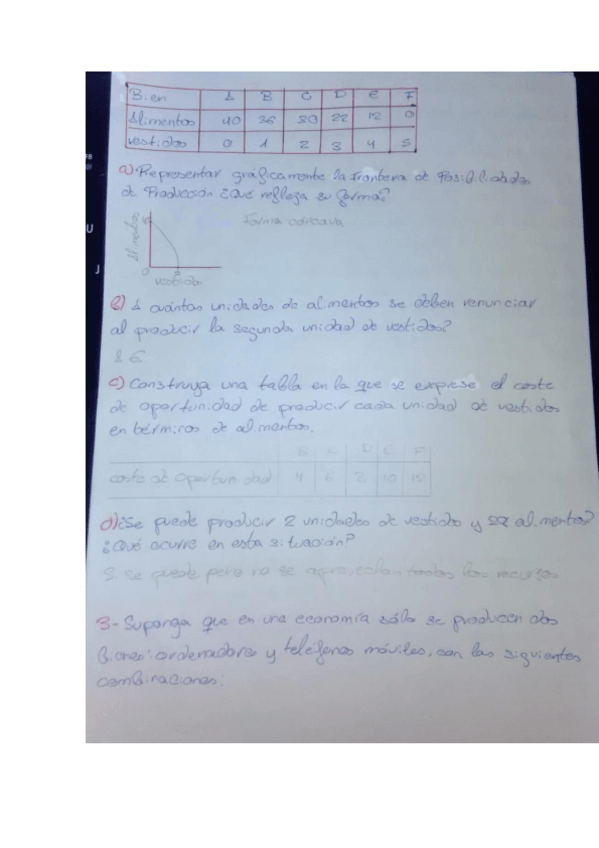 Bien A B C D E F
Alimentos 40 36 30 22 12 0
vestidos 0 1 2 3 4 5
a) Representar gráficamente la Frontera de Posibilidades
de Producción ¿Qué refleja su forma?
Forma cóncava
Alimentos
0
vestidos
b) A cuántas unidades de alimentos se deben renunciar
al producir la segunda unidad de vestidos?
a 6
c) Construya una tabla en la que se exprese el coste
de oportunidad de producir cada unidad de vestidos
en términos de alimentos.
B C D E F
coste de oportunidad 4 6 8 10 12
d) ¿Se puede producir 2 unidades de vestido y 22 alimentos?
¿Qué ocurre en esta situación?
Si se puede pero no se aprovechan todos los recursos
3- Suponga que en una economía sólo se producen dos
Bienes: ordenadores y teléfonos móviles, con las siguientes
combinaciones.